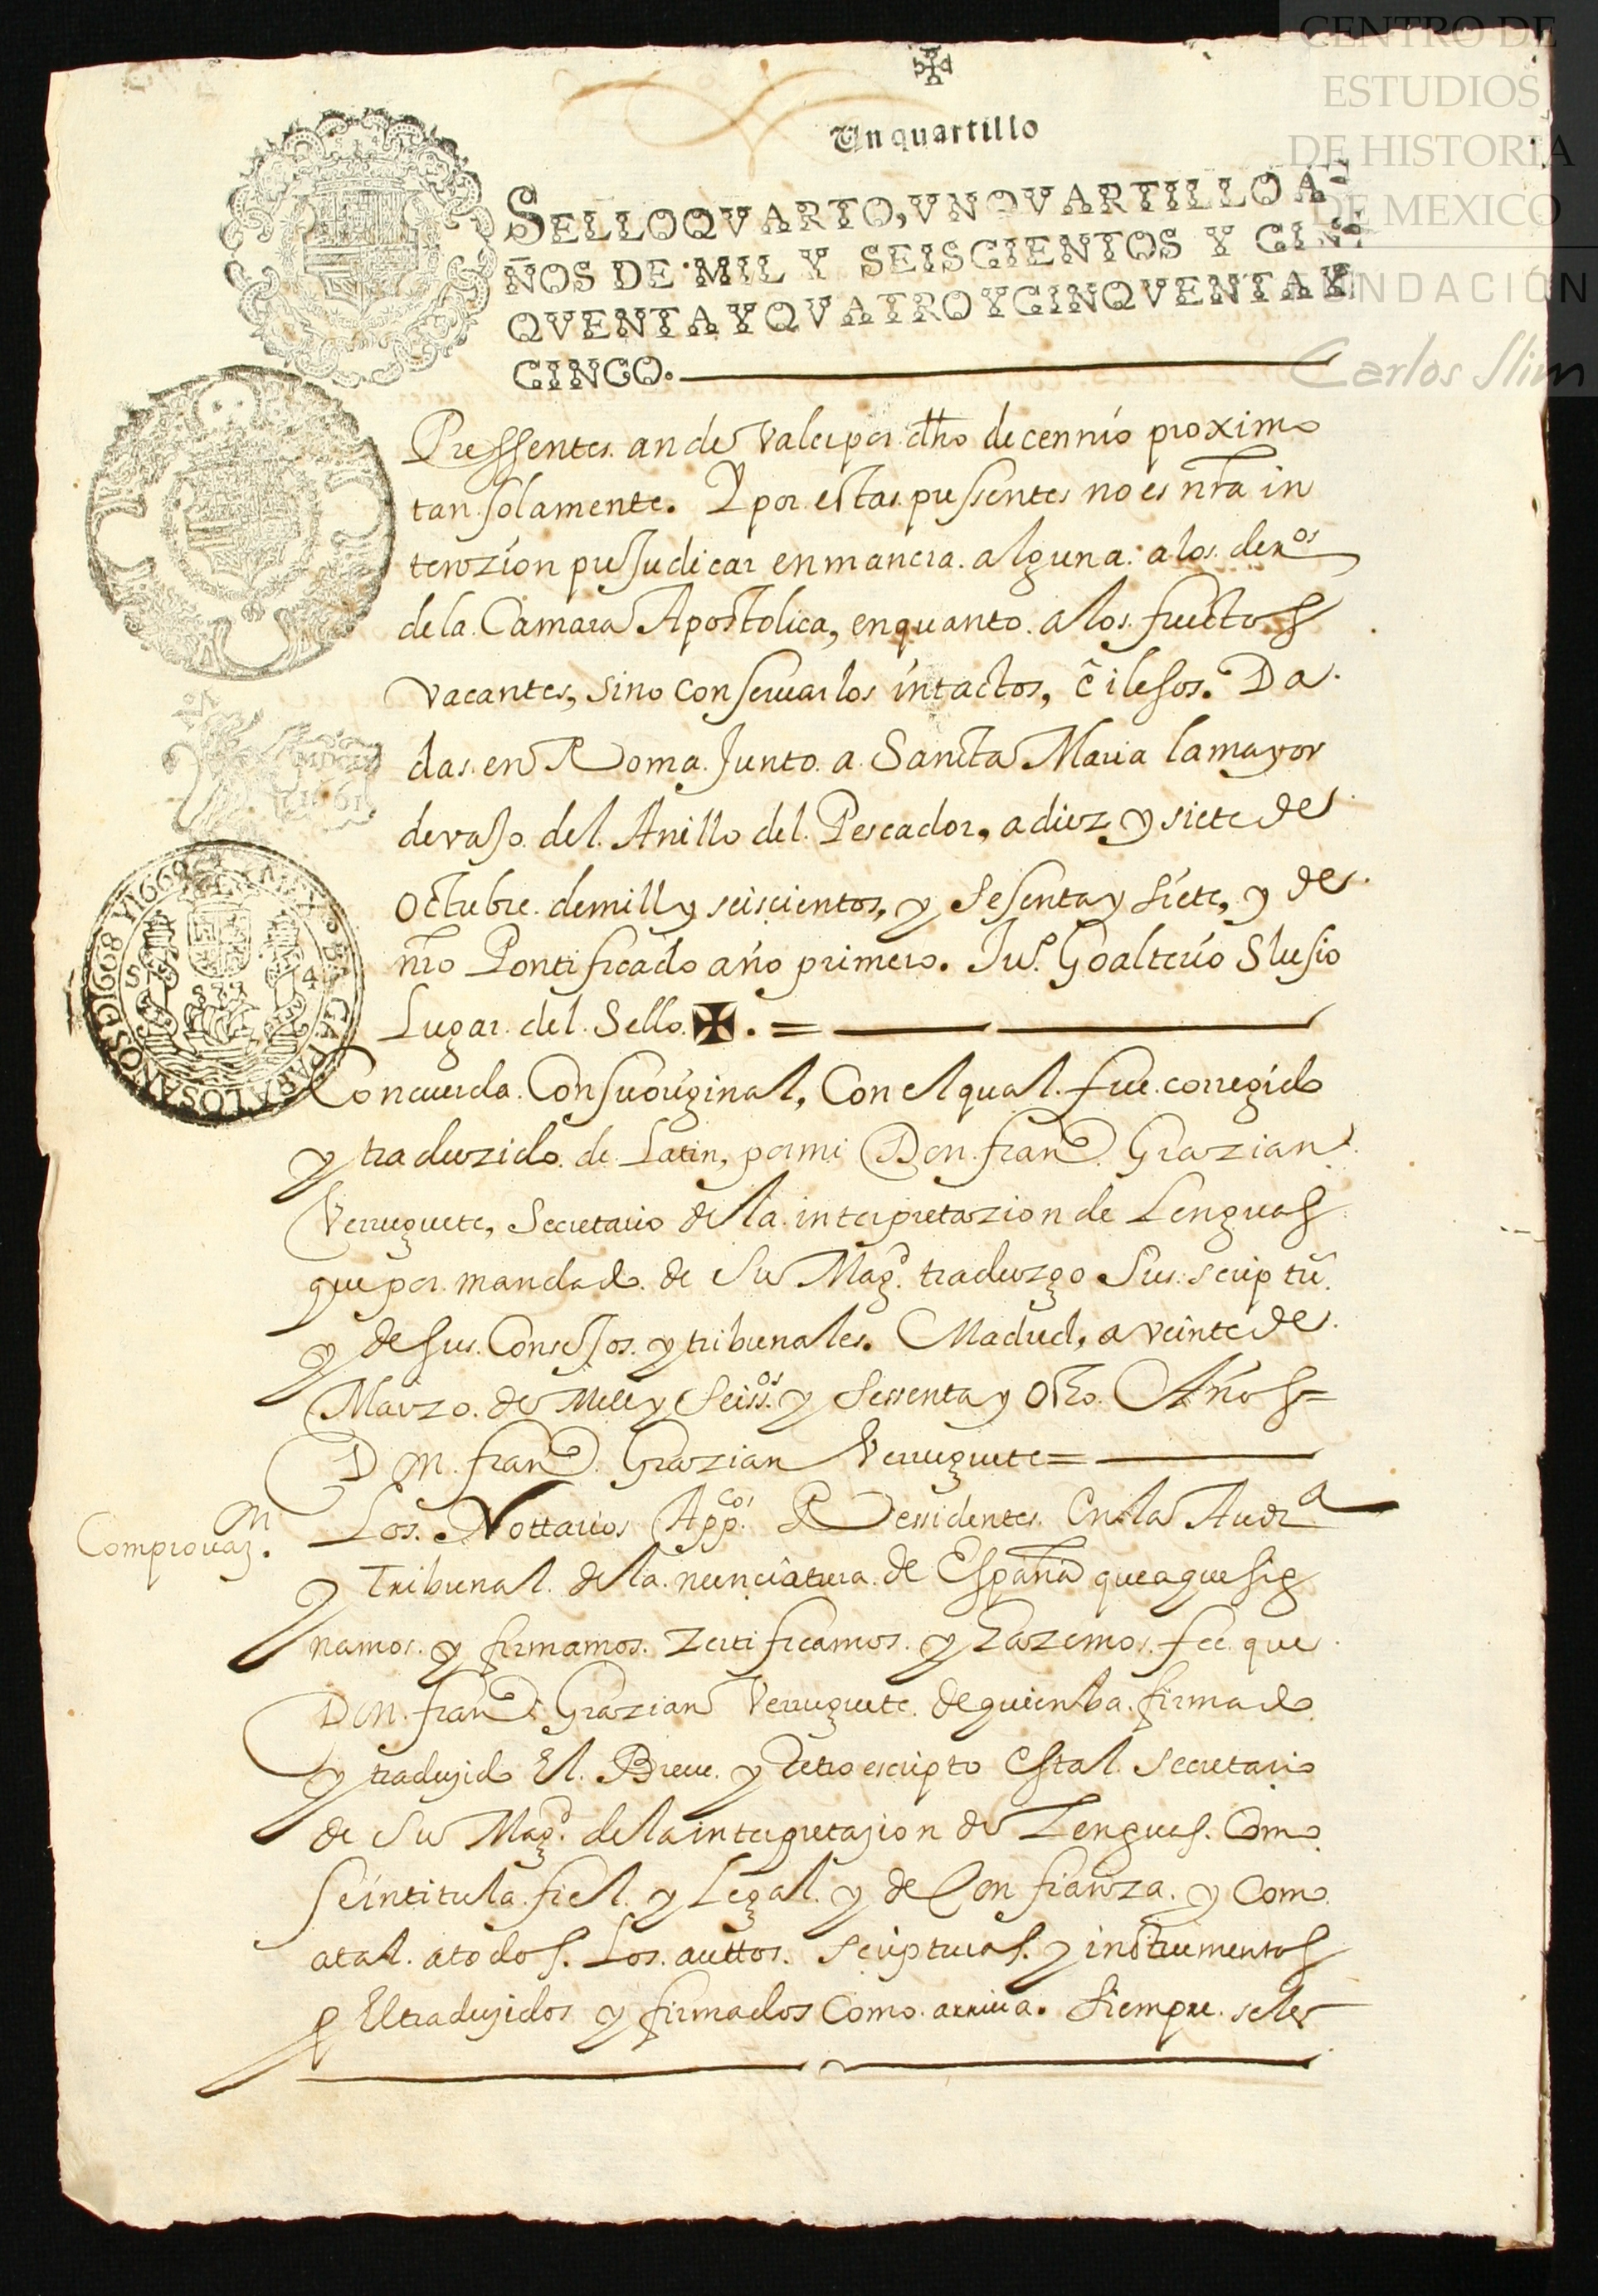 CENTRO DE
ESTUDIOS
DE HISTORIA
DE MEXICO
FUNDACIÓN
Carlos Slim
Un quartillo
SELLO QVARTO, VN QVARTILLO A-
ÑOS DE MIL Y SEISCIENTOS Y CIN-
QVENTA Y QVATRO Y CINQVENTA Y
CINCO.
Pressentes an de valer por dho decennio proximo
tan solamente. Y por estas pressentes no es nra in
tenzion prejudicar en manera alguna a los der.os
de la Camara Apostolica, en quanto a los fructos
vacantes, sino conseruarlos intactos, e ilesos. Da
das en Roma Junto a Sancta Maria la mayor
devajo del Anillo del Pescador, a diez y siete de
Octubre de mill y seiscientos, y sesenta y siete, y de
nro Pontificado año primero. Ju.s Goalterio Slusio
Lugar del Sello ✠. =
1661
S 4
PARA LOS AÑOS D 1668 Y 1669
Concuerda Con su original, Con el qual fue corregido
y traduzido de Latin, por mi Don fran.co Grazian
Verruguete, Secretario de la interpretazion de Lenguas
que por mandado de Su Mag.d traduzgo Sus scriptu.
y de sus Consejos y tribunales. Madrid, a veinte de
Marzo de Mill y Seiss.os y sessenta y Ocho Años =
Don fran.co Grazian Verruguete =
Comprouaz.on
Los Nottarios App.cos Ressidentes En la Aud.a
y Tribunal de la nunciatura de España que aque sig
namos y firmamos Zertificamos y hazemos fee que
Don fran.co Grazian Verruguete de quien ba firmado
y tradujido El Breue y Retro escripto es tal secretario
de Su Mag.d de la interpretasion de Lenguas Como
se intitula fiel y Legal y de Confianza y Como
a tal a todos Los auttos scripturas y instrumentos
p El tradujidos y firmados Como arriua. siempre se les